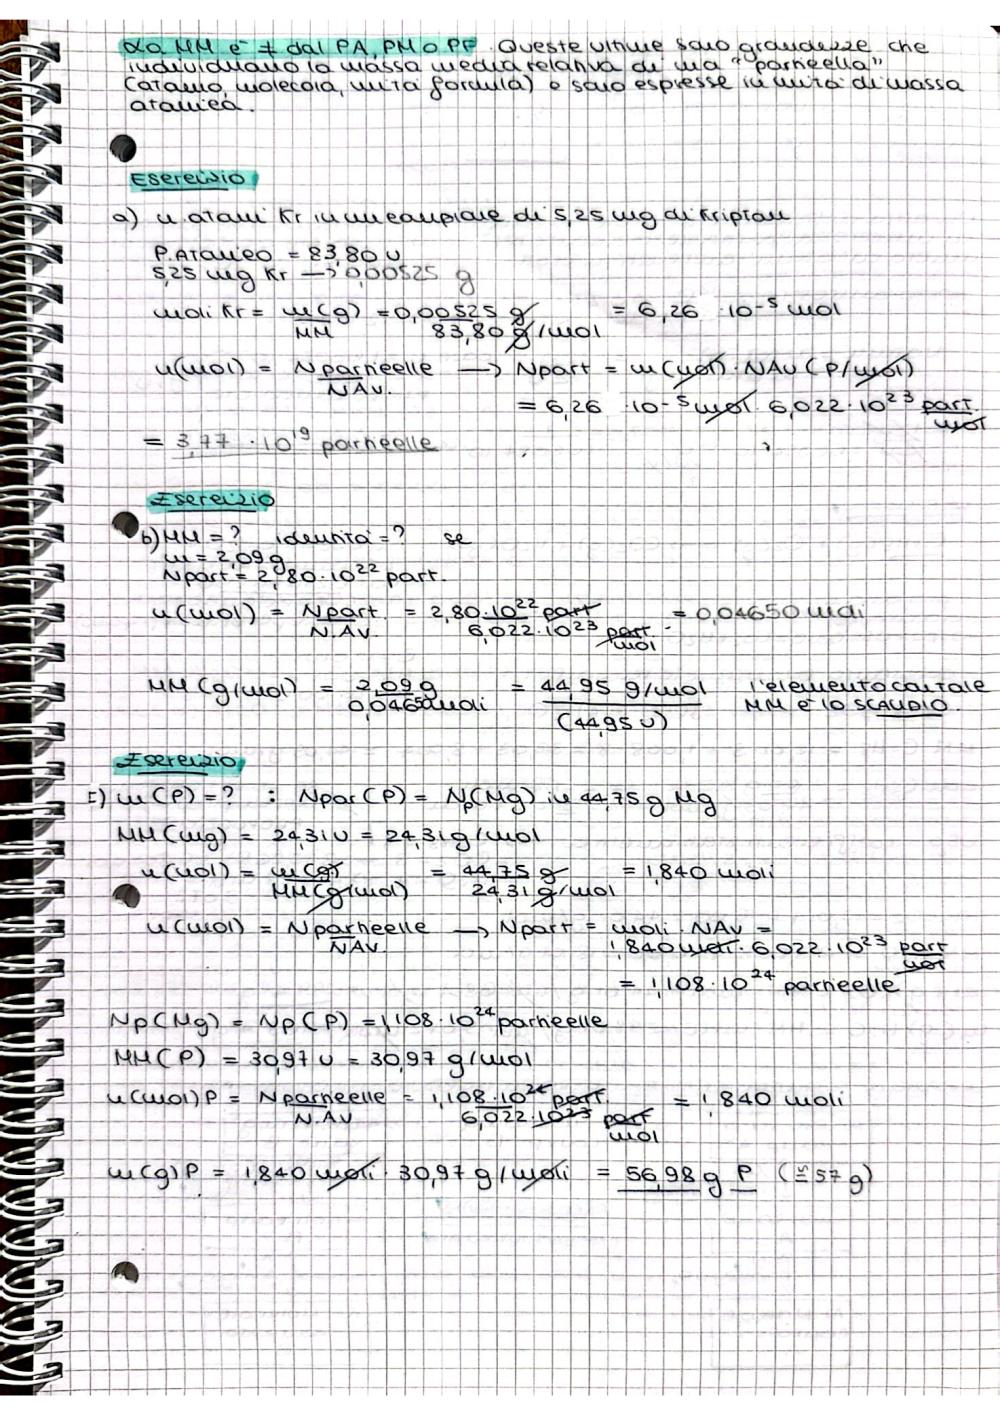 La MM è ≠ dal PA, PM o PF. Queste ultime sono grandezze che
individuano la massa media relativa di una "particella"
(atomo, molecola, unità formula) e sono espresse in unità di massa
atomica.
Esercizio
a) n. atomi Kr in un campione di 5,25 mg di kripton
P. Atomico = 83,80 u
5,25 mg Kr → 0,00525 g
moli Kr = m(g)/MM = 0,00525 g / 83,80 g/mol = 6,26 · 10⁻⁵ mol
n(mol) = Nparticelle/NAv. → Npart = n(mol) · NAv (P/mol)
= 6,26 · 10⁻⁵ mol · 6,022 · 10²³ part./mol
= 3,77 · 10¹⁹ particelle
Esercizio
b) MM = ? identità = ? se
m = 2,09 g
Npart = 2,80 · 10²² part.
n(mol) = Npart/N.Av. = 2,80 · 10²² part / 6,022 · 10²³ part./mol = 0,04650 moli
MM (g/mol) = 2,09 g / 0,04650 moli = 44,95 g/mol l'elemento con tale
(44,95 u) MM è lo SCANDIO.
Esercizio
c) m (P) = ? : Npar (P) = Np(Mg) in 44,75 g Mg
MM (mg) = 24,31 u = 24,31 g/mol
n(mol) = m(g)/MM(g/mol) = 44,75 g / 24,31 g/mol = 1,840 moli
n(mol) = Nparticelle/NAv → Npart = moli · NAv =
1,840 moli · 6,022 · 10²³ part/mol
= 1,108 · 10²⁴ particelle
Np(Mg) = Np(P) = 1,108 · 10²⁴ particelle
MM(P) = 30,97 u = 30,97 g/mol
n(mol) P = Nparticelle/N.Av = 1,108 · 10²⁴ part. / 6,022 · 10²³ part/mol = 1,840 moli
m(g) P = 1,840 moli · 30,97 g/moli = 56,98 g P (≅ 57 g)